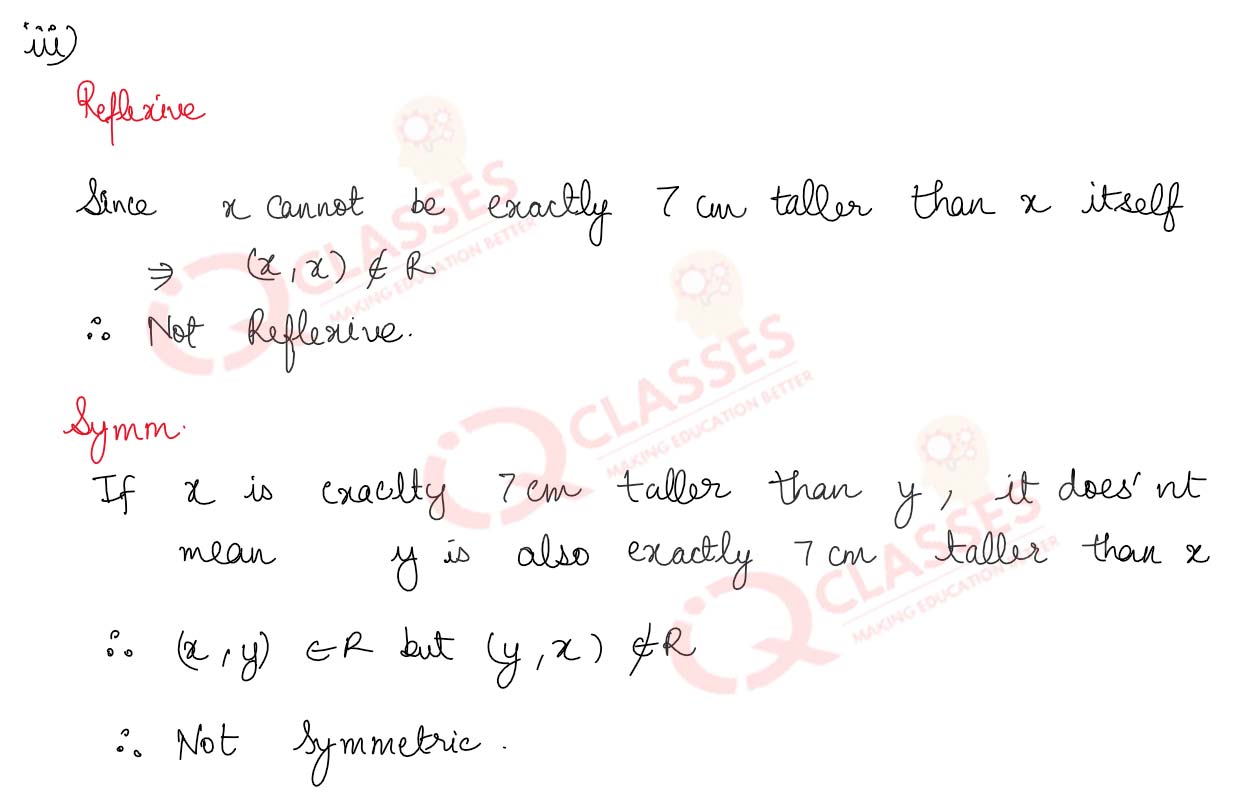 iii)
Reflexive
Since x cannot be exactly 7 cm taller than x itself
⇒ (x, x) ∉ R
∴ Not Reflexive.
Symm.
If x is exaclty 7 cm taller than y, it does'nt
mean y is also exactly 7 cm taller than x
∴ (x, y) ∈ R but (y, x) ∉ R
∴ Not Symmetric.
iQ CLASSES
MAKING EDUCATION BETTER
iQ CLASSES
MAKING EDUCATION BETTER
iQ CLASSES
MAKING EDUCATION BETTER